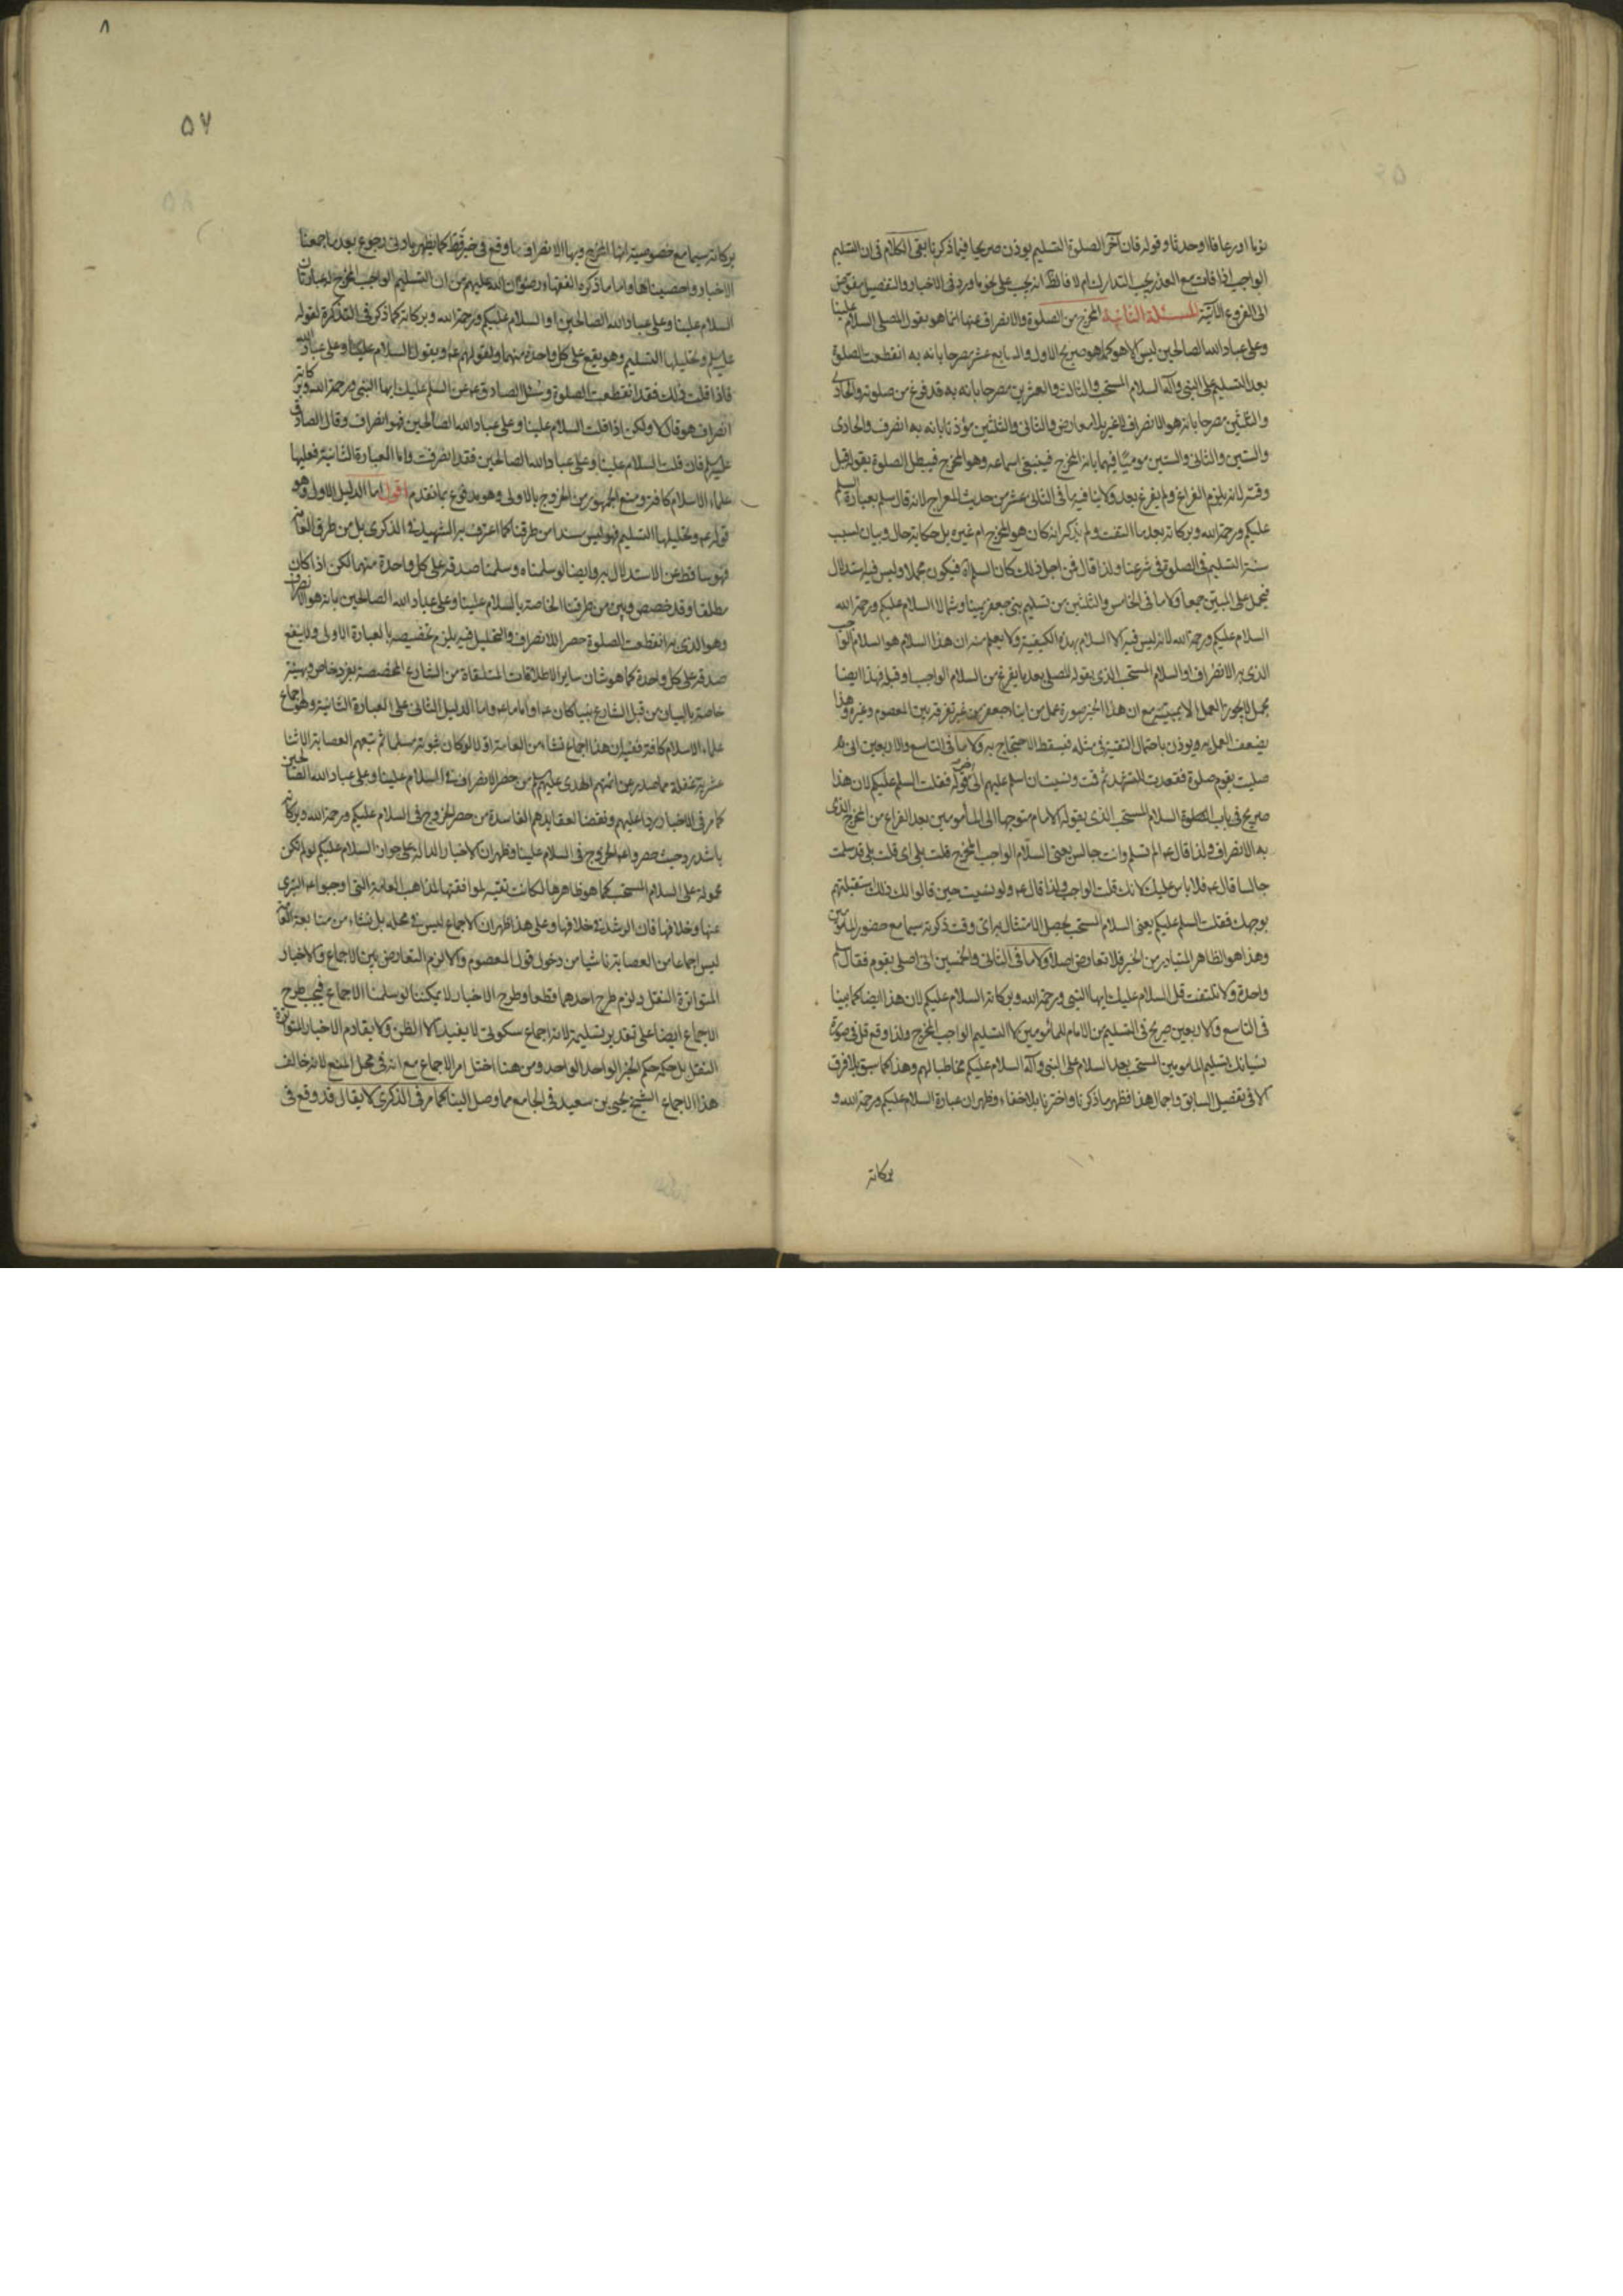 نوما اورعافا اوحدثا وقوله فان آخر الصلوة التسليم يوذن صريحا فيما ذكرنا بقى الكلام فى ان التسليم
الواجب اذا فات مع العذر يجب التدارك ام لا فالظ انه يجب على نحو ما ورد فى الاخبار والتفصيل مفوض
الى الفروع الآتية المسئلة الثانية المخرج من الصلوة والانصراف عنها انما هو بقول المصلى السلام علينا
وعلى عباد الله الصالحين ليس الا هو كما هو صريح الاول والسابع عشر مصرحا بانه به انقطعت الصلوة
بعد التسليم على النبى وآله السلام المستحب والثالث والعشرين مصرحا بانه به قد فرغ من صلوته والحادى
والثلثين مصرحا بانه هو الانصراف لا غير بلا معارض والثانى والثلثين مؤذنا بانه به انصرف والحادى
والستين والثانى والستين موميًا فيهما بانه المخرج فينبغى اسماعه وهو المخرج فيبطل الصلوة بقوله قبل
وقته لانه يلزم الفراغ ولم يفرغ بعد ولا ينافيه ما فى الثانى عشر من حديث المعراج لانه قال سلم بعبارة السلم
عليكم ورحمة الله وبركاته بعد ما التفت ولم يذكر انه كان هو المخرج ام غيره بل حكاية حال وبيان لسبب
سنة التسليم فى الصلوة فى شرعنا ولذا قال فمن اجل ذلك كان السلام فيكون مجملا وليس فيه استدلال
فيحمل على المبين جمعا ولا ما فى الخامس والثلثين من تسليم بنى جعفر يمينا وشمالا السلام عليكم ورحمة الله
السلام عليكم ورحمة الله لانه ليس فيه الا السلام بهذه الكيفية ولا يعلم منه ان هذا السلام هو السلام الواجب
الذى به الانصراف او السلام المستحب الذى يقوله المصلى بعد ما يفرغ من السلام الواجب او قبله فهذا ايضا
مجمل لا يجوز العمل الا بمبينه مع ان هذا الخبر صورة عمل من ابناء جعفر من غير تفرقة بين المعصوم وغيره وهذا
يضعف العمل به ويوذن باحتمال التقية فى مثله فيسقط الاحتجاج به ولا ما فى التاسع والاربعين انى
صليت بقوم صلوة فقعدت للتشهد ثم قمت ونسيت ان اسلم عليهم الى قوله فقلت السلم عليكم لان هذا
صريح فى باب السلام المستحب الذى يقوله الامام متوجها الى المأمومين بعد الفراغ من المخرج الذى
به الانصراف ولذا قال عه الم تسلم وانت جالس يعنى السلام الواجب المخرج قلت بلى اى قلت بلى قد سلمت
جالسا قال عه فلا باس عليك لانك قلت الواجب ولذا قال عه ولو نسيت حين قالوا لك ذلك استقبلتهم
بوجهك فقلت السلم عليكم يعنى السلام المستحب لحصل الامتثال به اى وقت ذكرته سيما مع حضور المأمومين
وهذا هو الظاهر المتبادر من الخبر فلا تعارض اصلا ولا ما فى الثانى والخمسين انى اصلى بقوم فقال سلم
واحدة ولا تلتفت قل السلام عليك ايها النبى ورحمة الله وبركاته السلام عليكم لان هذا ايضا كما بينا
فى التاسع والاربعين صريح فى التسليم من الامام للمأمومين لا التسليم الواجب المخرج ولذا وقع قل فى صورة
نسيانك تسليم المأمومين المستحب بعد السلام على النبى وآله السلام عليكم مخاطبا لهم وهذا كما سبق بلا فرق
الا فى تفصيل السابق واجمال هذا فظهر ما ذكرنا واخترنا بلا خفاء وظهر ان عبارة السلام عليكم ورحمة الله و
بركاته
٨
٥٧
بركاته سيما مع خصوصية انها المخرج وبها الانصراف ما وقع فى خبر قط كما يظهر بادنى رجوع بعد ما جمعنا
الاخبار واحصيناها واما ما ذكره الفقهاء رضوان الله عليهم من ان التسليم الواجب المخرج له عبارتان
السلام علينا وعلى عباد الله الصالحين او السلام عليكم ورحمة الله وبركاته كما ذكر فى التذكرة لقوله
عليه السلم وتحليلها التسليم وهو يقع على كل واحدة منهما ولقولهم عه ويقول السلام علينا وعلى عباد الله
فاذا قلت ذلك فقد انقطعت الصلوة وسئل الصادق عه عن السلم عليك ايها النبى ورحمة الله وبركاته
انصراف هو قال لا ولكن اذا قلت السلام علينا وعلى عباد الله الصالحين فهو انصراف وقال الصادق
عليه السلم فان قلت السلام علينا وعلى عباد الله الصالحين فقد انصرفت واما العبارة الثانية فعليها
علماء الاسلام كافة ومنع الجمهور من الخروج بالاولى وهو مدفوع بما تقدم اقول اما الدليل الاول وهو
قوله عه وتحليلها التسليم فهو ليس مسندا من طرقنا كما اعترف به الشهيد فى الذكرى بل من طرق العامة
فهو ساقط عن الاستدلال به وايضا لو سلمناه وسلمنا صدقه على كل واحدة منهما لكن اذا كان
مطلقا وقد خصص وبين من طرقنا الخاصة بالسلام علينا وعلى عباد الله الصالحين بانه هو الانصراف
وهو الذى به انقطعت الصلوة حصرا للانصراف والتحليل فيه يلزم تخصيصه بالعبارة الاولى ولا ينفع
صدقه على كل واحدة كما هو شان ساير الاطلاقات المتلقاة من الشارع المخصصة بفرد خاص وبهيئة
خاصة بالبيان من قبل الشارع نبيا كان عه او اماما عه واما الدليل الثانى على العبارة الثانية وهو اجماع
علماء الاسلام كافة ففيه ان هذا اجماع نشاء من العامة اولا لو كان ثبوته مسلما ثم تبعهم العصابة الاثنا
عشرية غفلة مما صدر عن ائمتهم الهدى عليهم السلم من حصر الانصراف فى السلام علينا وعلى عباد الله الصالحين
كما مر فى الاخبار ردا عليهم ونقضا لعقايدهم الفاسدة من حصر الخروج فى السلام عليكم ورحمة الله وبركاته
باشد رد حيث حصروا عه الخروج فى السلام علينا وظهر ان الاخبار الدالة على جواز السلام عليكم لو لم تكن
محمولة على السلام المستحب كما هو ظاهرها لكانت تقية لموافقتها لمذاهب العامة التى اوجبوا عه التبرى
عنها وخلافها فان الرشد فى خلافها وعلى هذا ظهر ان الاجماع ليس فى محله بل نشاء من متابعة العامة
ليس اجماعا من العصابة ناشيا من دخول قول المعصوم والا لزم التعارض بين الاجماع والاخبار
المتواترة النقل ولزم طرح احدهما قطعا وطرح الاخبار لا يمكننا لو سلمنا الاجماع فيجب طرح
الاجماع ايضا على تقدير تسليمه لانه اجماع سكوتى لا يفيد الا الظن ولا يقادم الاخبار المتواترة
النقل بل حكمه حكم الخبر الواحد الواحد ومن هنا اختل امر الاجماع مع انه فى محل المنع لانه خالف
هذا الاجماع الشيخ يحيى بن سعيد فى الجامع مما وصل الينا كما مر فى الذكرى لا يقال قد وقع فى